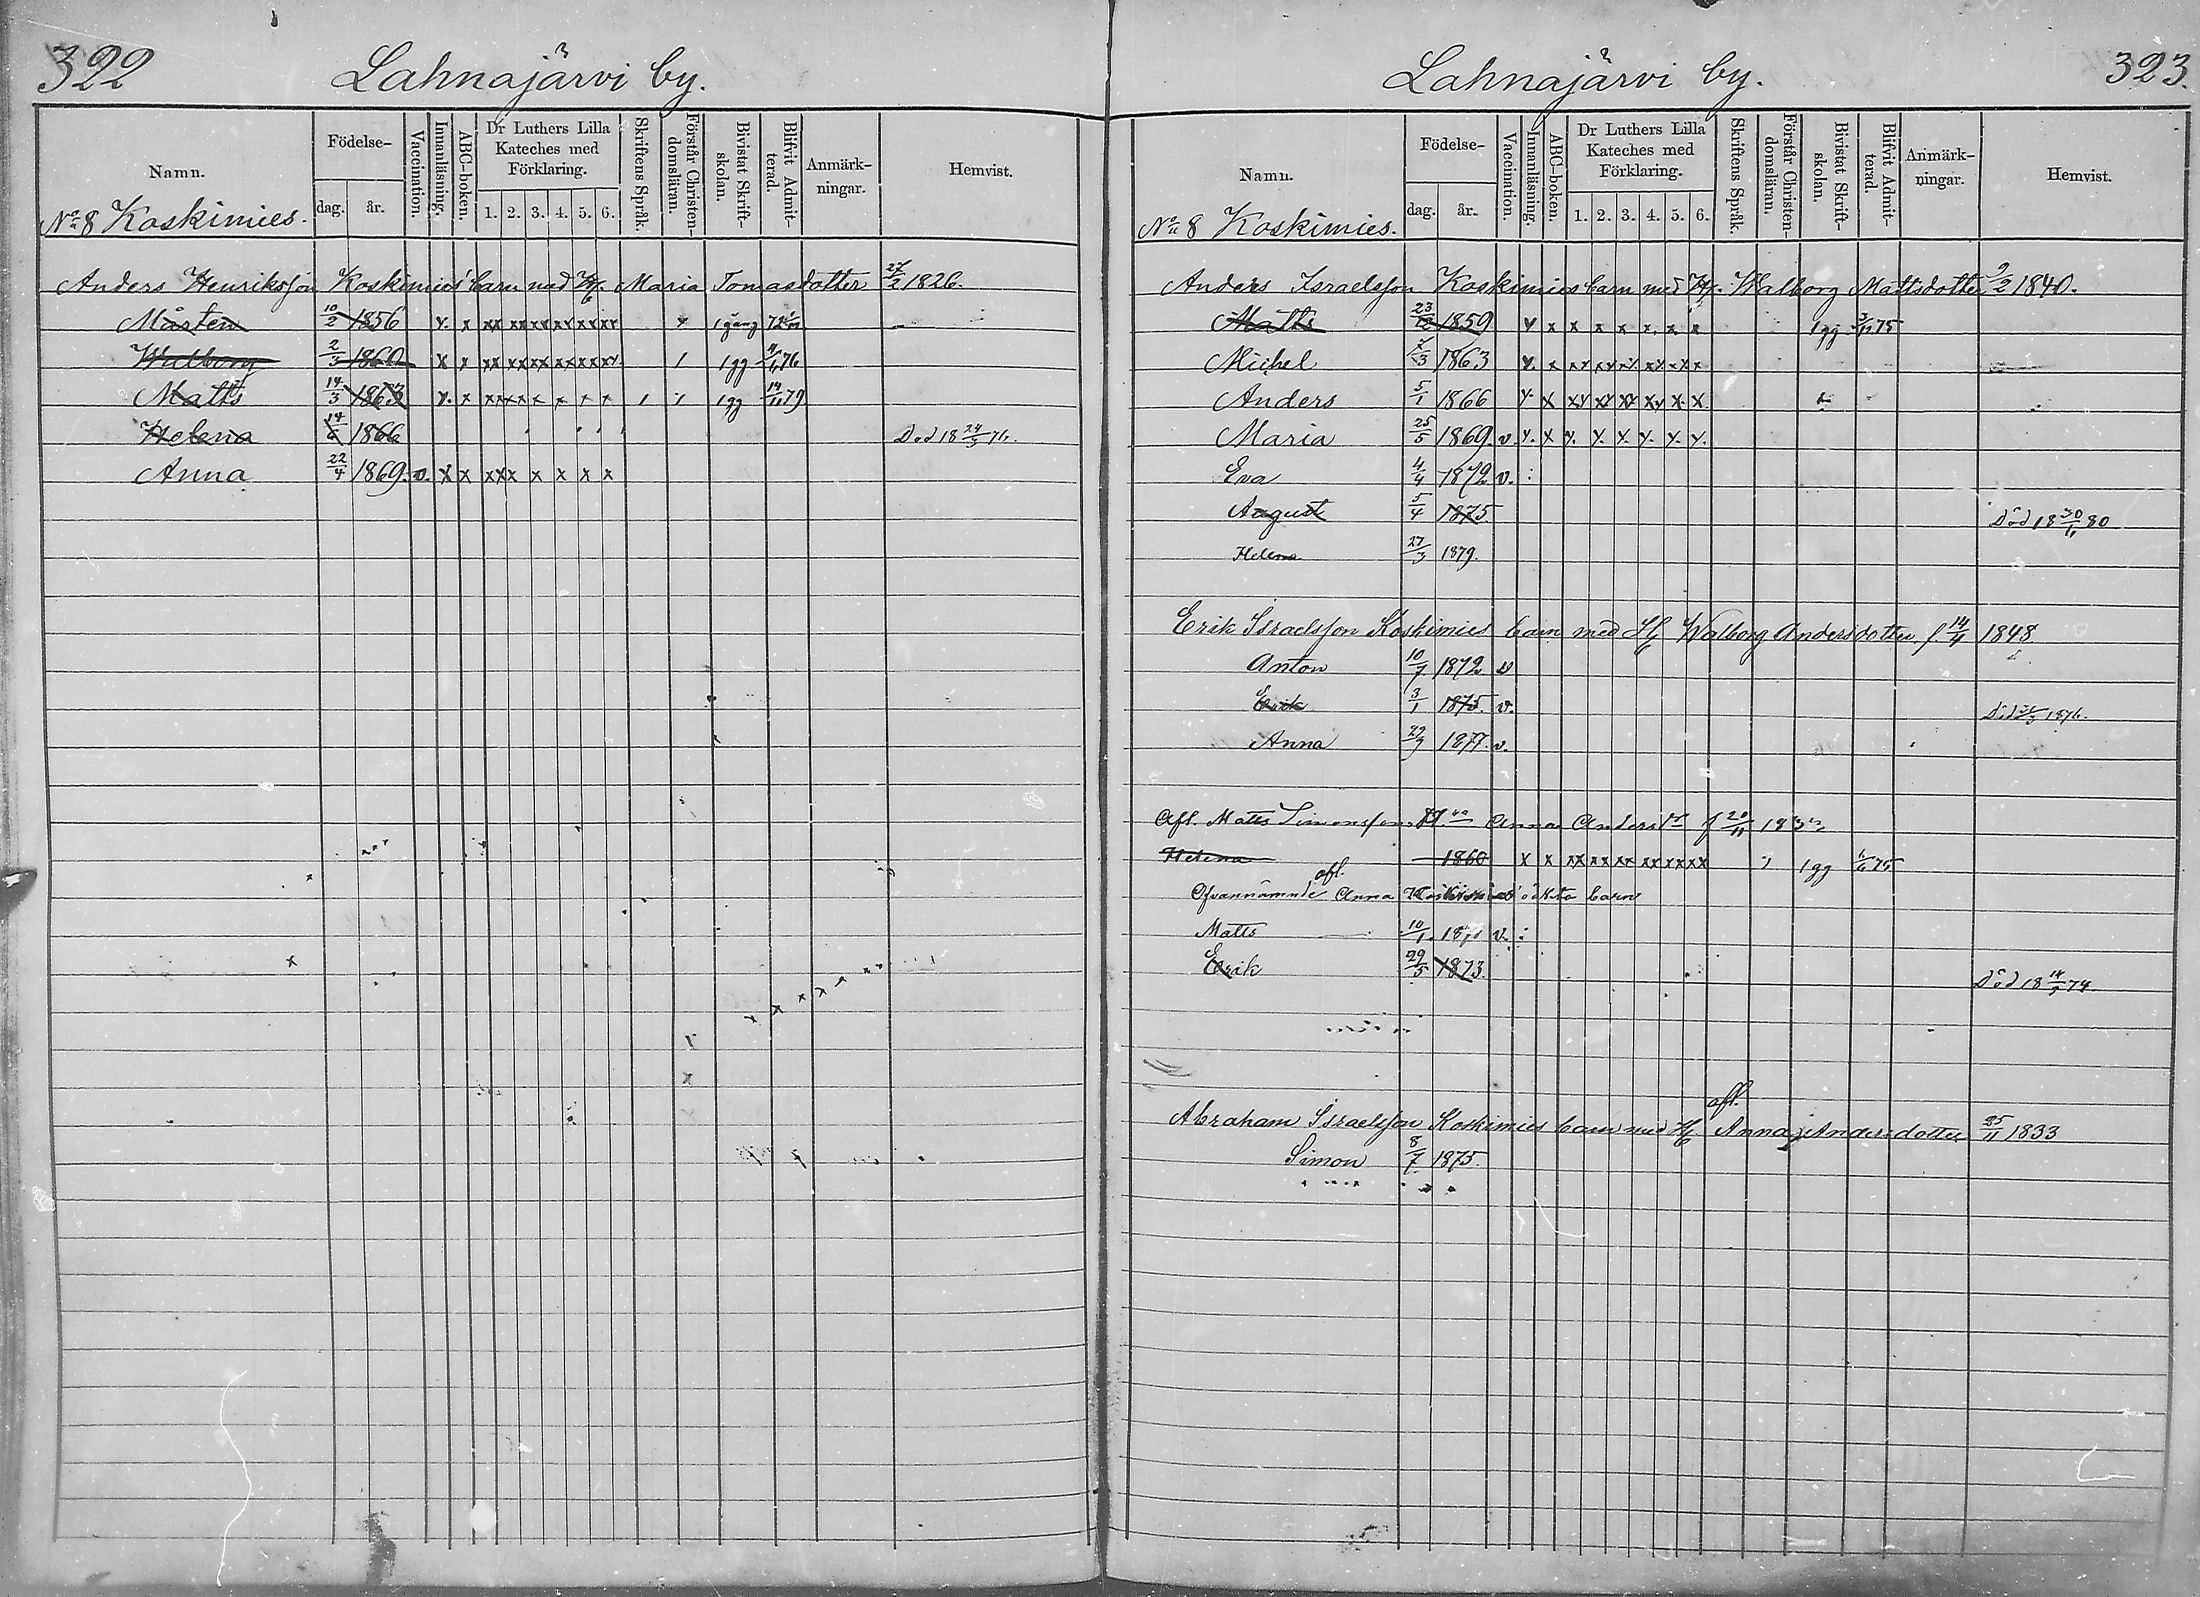 322 Lahnajärvi by.
Namn. Födelse- dag. år. Vaccination. Innanläsning. ABC-boken. Dr Luthers Lilla Kateches med Förklaring. 1. 2. 3. 4. 5. 6. Skriftens Språk. Förstår Christen-domsläran. Bivistat Skrift-skolan. Blifvit Admit-terad. Anmärk-ningar. Hemvist.
No 8 Koskimies.
Anders Henriksson Koskimies' barn med H. Maria Tomasdotter 27/2 1826.
Mårten 10/2 1856 x x xx xx xx xx xx xx x 1 gång
Walborg 2/3 1860 x x xx xx xx xx xx xx 1 1 gg 76
Matts 14/3 1863 x x xx xx x x x x 1 1 1 gg 14/11 79
Helena 1866 Död 18 24/5 76.
Anna 22/4 1869. v. x x xx x x x x x
Lahnajärvi by. 323.
Namn. Födelse- dag. år. Vaccination. Innanläsning. ABC-boken. Dr Luthers Lilla Kateches med Förklaring. 1. 2. 3. 4. 5. 6. Skriftens Språk. Förstår Christen-domsläran. Bivistat Skrift-skolan. Blifvit Admit-terad. Anmärk-ningar. Hemvist.
No 8 Koskimies.
Anders Israelsson Koskimies barn med H. Walborg Mattsdotter 9/2 1840.
Matts 23/12 1859 x x x x x x x x 1 gg 75
Michel 1863 x x xx xx xx xx xx x
Anders 5/1 1866 x x xx xx xx xx x x
Maria 25/5 1869. v. x x x x x x x x
Eva 4/4 1872 v.
August 5/4 1875. Död 18 30/11 80
Helena 27/3 1879.
Erik Israelsson Koskimies barn med H. Walborg Andersdotter, f. 14/4 1848
Anton 10/7 1872 v
Erik 3/1 1875. v. Död 1876.
Anna 1877. v.
Afl. Matts Simonsson Anna Anders dr f 20/11
Helena 1860 x x xx xx xx xx xx xx 1 1 gg 75
Ofvannämnde afl. Anna Koskimies' oäkta barn
Matts 10/1. v.
Erik 29/5 1873. Död 18 74.
Abraham Israelsson Koskimies barn med H. afl. Anna Andersdotter 25/11 1833
Simon 8/7 1875.